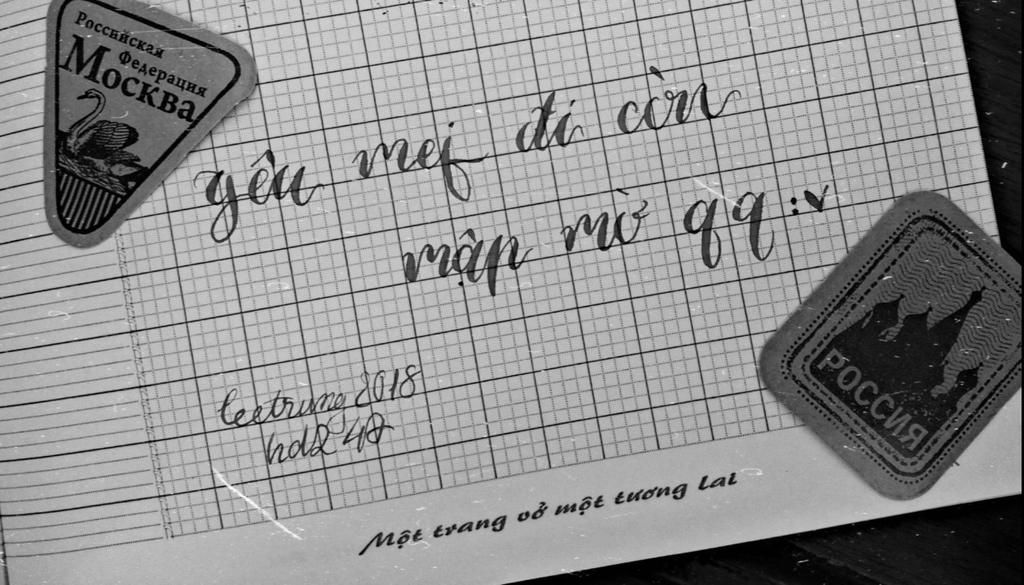 Российская
Федерация
Москва
yêu mej đi còn
mập mờ qq :v
leetrung 2018
РОССИЯ
Một trang vở một tương lai